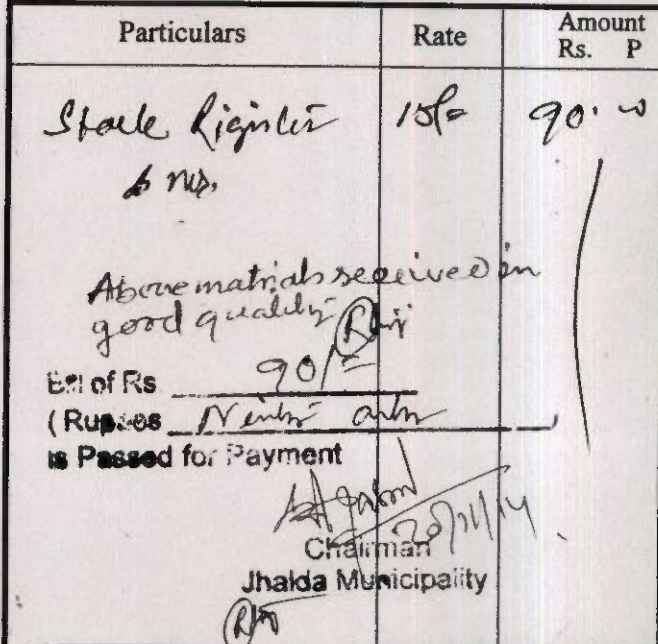 Particulars Rate Amount
Rs. P
Stock Register 15/= 90.00
6 no.
Above matrials received in
good quality
Bill of Rs 90/=
(Rupees Ninty only
is Passed for Payment
20/11/14
Chairman
Jhalda Municipality